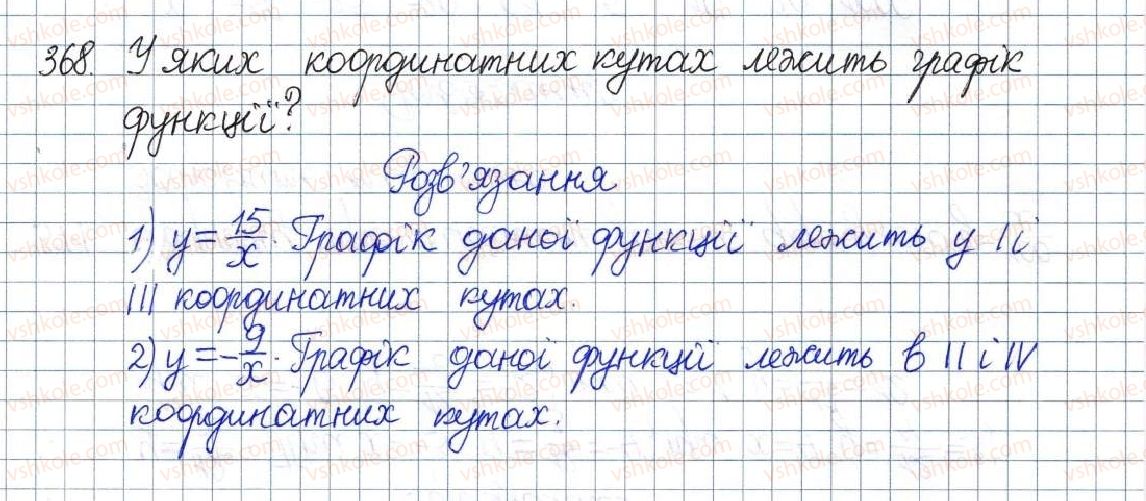 368. У яких координатних кутах лежить графік
функції?
Розв'язання
1) y = 15/x. Графік даної функції лежить у I і
III координатних кутах.
2) y = -9/x. Графік даної функцій лежить в II і IV
координатних кутах.